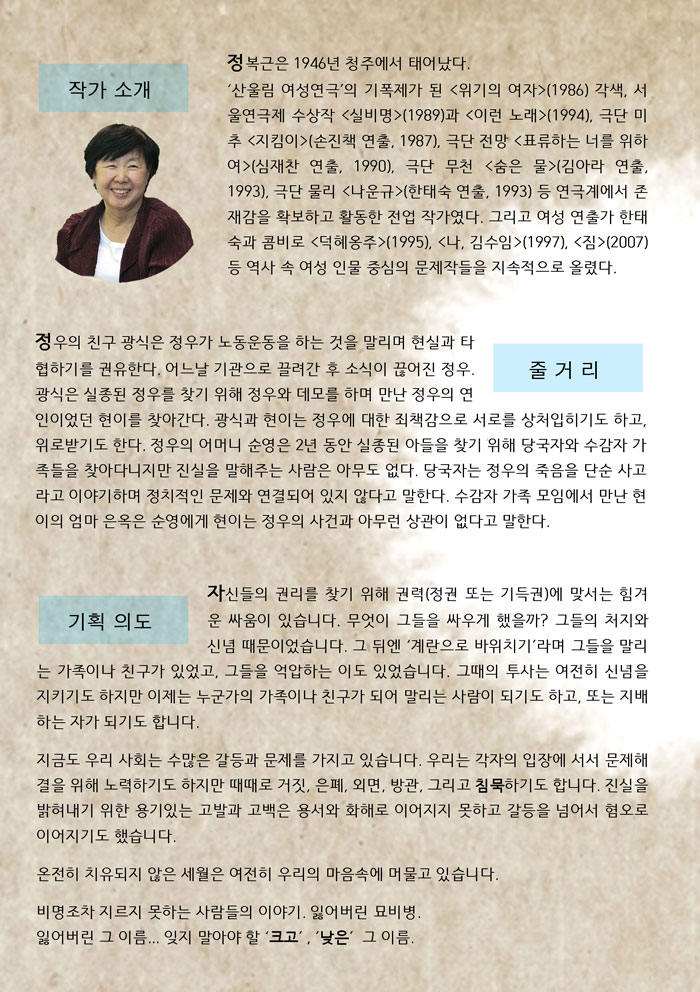 작가 소개
정복근은 1946년 청주에서 태어났다.
‘산울림 여성연극’의 기폭제가 된 <위기의 여자>(1986) 각색, 서
울연극제 수상작 <실비명>(1989)과 <이런 노래>(1994), 극단 미
추 <지킴이>(손진책 연출, 1987), 극단 전망 <표류하는 너를 위하
여>(심재찬 연출, 1990), 극단 무천 <숨은 물>(김아라 연출,
1993), 극단 물리 <나운규>(한태숙 연출, 1993) 등 연극계에서 존
재감을 확보하고 활동한 전업 작가였다. 그리고 여성 연출가 한태
숙과 콤비로 <덕혜옹주>(1995), <나, 김수임>(1997), <짐>(2007)
등 역사 속 여성 인물 중심의 문제작들을 지속적으로 올렸다.
줄 거 리
정우의 친구 광식은 정우가 노동운동을 하는 것을 말리며 현실과 타
협하기를 권유한다. 어느날 기관으로 끌려간 후 소식이 끊어진 정우.
광식은 실종된 정우를 찾기 위해 정우와 데모를 하며 만난 정우의 연
인이었던 현이를 찾아간다. 광식과 현이는 정우에 대한 죄책감으로 서로를 상처입히기도 하고,
위로받기도 한다. 정우의 어머니 순영은 2년 동안 실종된 아들을 찾기 위해 당국자와 수감자 가
족들을 찾아다니지만 진실을 말해주는 사람은 아무도 없다. 당국자는 정우의 죽음을 단순 사고
라고 이야기하며 정치적인 문제와 연결되어 있지 않다고 말한다. 수감자 가족 모임에서 만난 현
이의 엄마 은옥은 순영에게 현이는 정우의 사건과 아무런 상관이 없다고 말한다.
기획 의도
자신들의 권리를 찾기 위해 권력(정권 또는 기득권)에 맞서는 힘겨
운 싸움이 있습니다. 무엇이 그들을 싸우게 했을까? 그들의 처지와
신념 때문이었습니다. 그 뒤엔 ‘계란으로 바위치기’라며 그들을 말리
는 가족이나 친구가 있었고, 그들을 억압하는 이도 있었습니다. 그때의 투사는 여전히 신념을
지키기도 하지만 이제는 누군가의 가족이나 친구가 되어 말리는 사람이 되기도 하고, 또는 지배
하는 자가 되기도 합니다.
지금도 우리 사회는 수많은 갈등과 문제를 가지고 있습니다. 우리는 각자의 입장에 서서 문제해
결을 위해 노력하기도 하지만 때때로 거짓, 은폐, 외면, 방관, 그리고 침묵하기도 합니다. 진실을
밝혀내기 위한 용기있는 고발과 고백은 용서와 화해로 이어지지 못하고 갈등을 넘어서 혐오로
이어지기도 했습니다.
온전히 치유되지 않은 세월은 여전히 우리의 마음속에 머물고 있습니다.
비명조차 지르지 못하는 사람들의 이야기. 잃어버린 묘비병.
잃어버린 그 이름... 잊지 말아야 할 ‘크고’ , ‘낮은’ 그 이름.